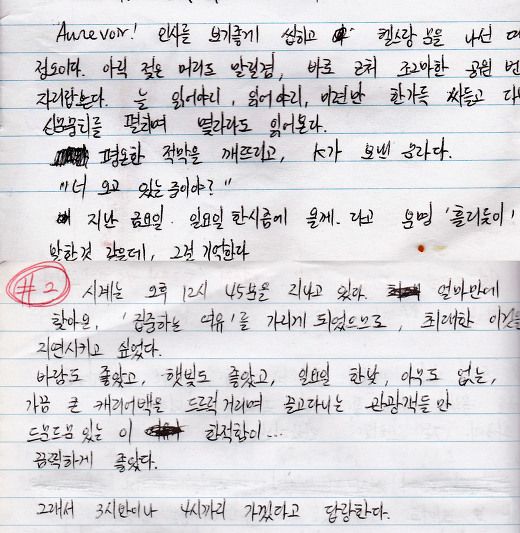 "Aurevoir! 인사를 보기좋게 씹하고 켈스랑 몸을 나선
정도이다. 아직 젖은 머리도 말릴겸, 바로 근처 조그마한 공원 벤
자리잡는다. 늘 읽어야지, 읽어야지, 미련만 한가득 싸들고 다
펼치며 몇라라도 읽어본다.
평온한 적막을 깨뜨리고, K가 보낸 문자다.
"너 오고 있는 중이야?"
지난 금요일. 일요일 한시쯤에 올게. 다고 분명 '흘리듯이'
말한것 같은데, 그걸 기억한다
#2 시계는 오후 12시 45분을 지나고 있다. 얼마만에
찾아온, '집중하는 여유'를 가리게 되었으므로, 최대한 이것을
지연시키고 싶었다.
바람도 좋았고, 햇빛도 좋았고, 일요일 한낮, 아무도 없는,
가끔 큰 캐리어백을 드르럭 거리며 끌고다니는 관광객들만
드문드문 있는 이 한적함이...
끔찍하게 좋았다.
그래서 3시반이나 4시까지 가겠다고 답장한다.